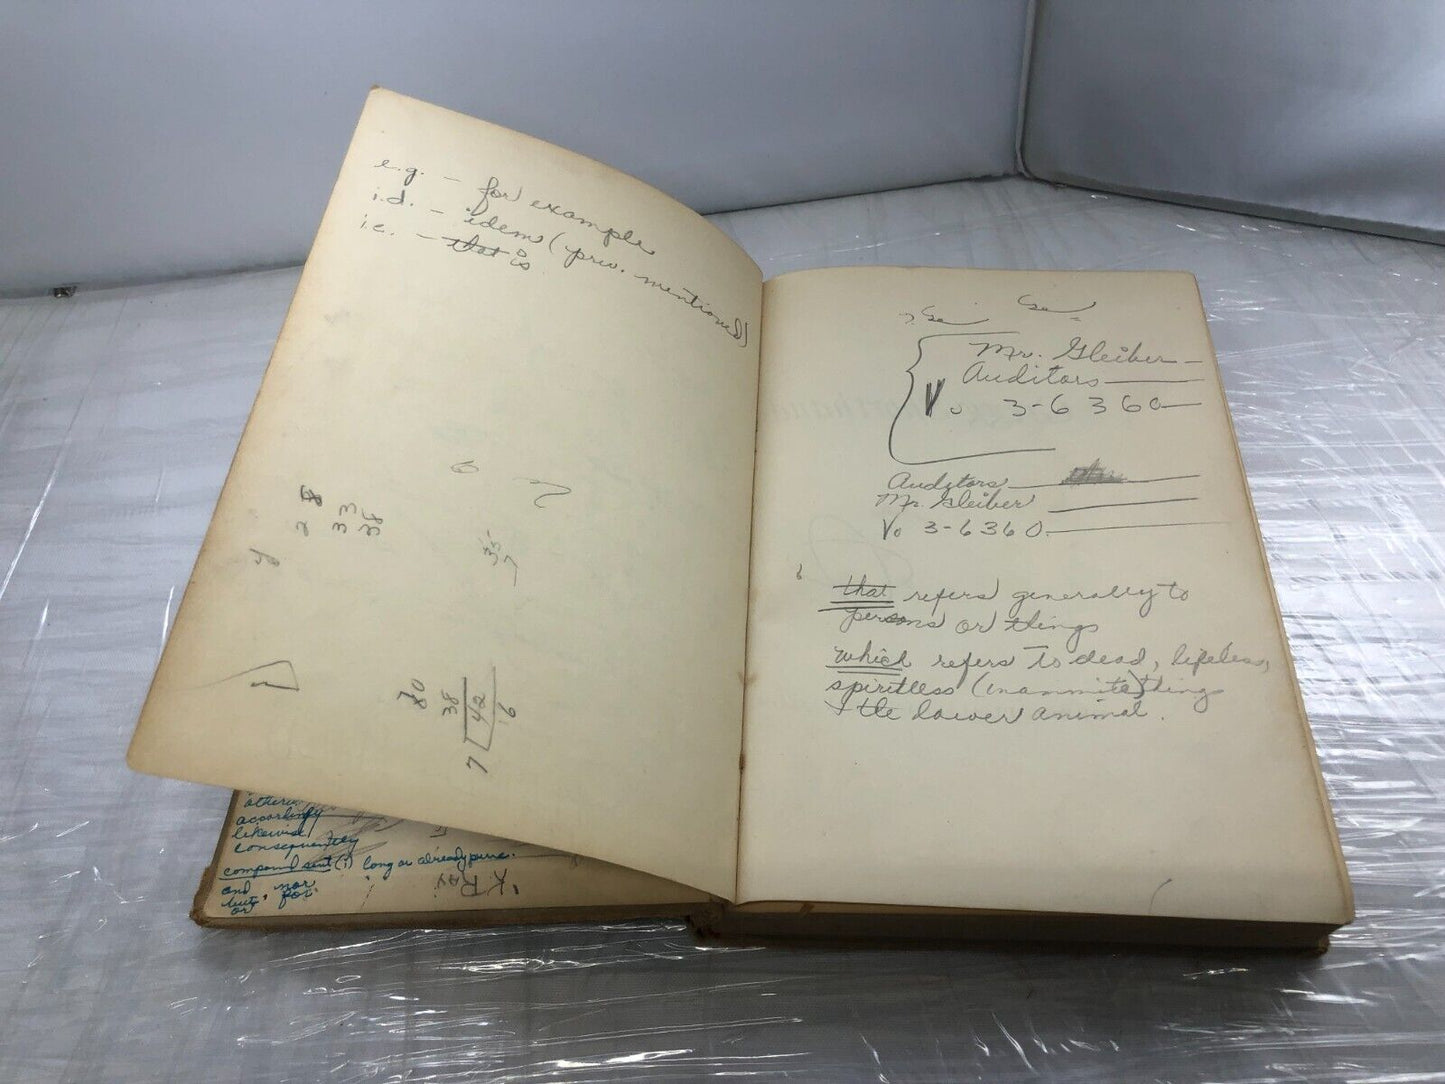 e.g. – for example
i.d. – idem (prev. mentioned)
i.e. – that is
8
2
33
33
38
35
7
80
38
7 42
6
Mr. Gleiber –
Auditors
Vo 3-6360
Auditors
Mr. Gleiber
Vo 3-6360
that refers generally to
persons or things
which refers to dead, lifeless,
spiritless (inammite) things
& the lower animal.
accordingly
likewise
consequently
compound sent (;) long or already punc.
and, nor
but, for
or
K RAY